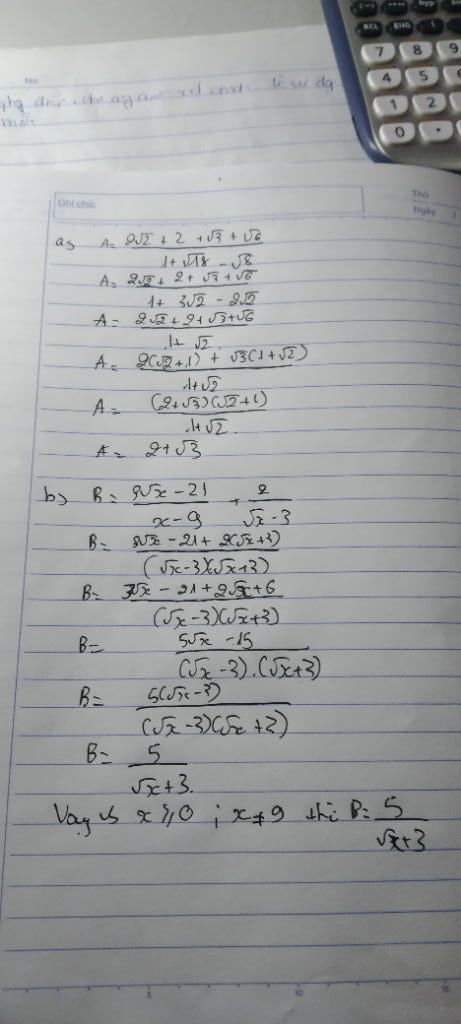 7 8 9
4 5 6
1 2
0 .
No.
Ghi chú:
Thứ
Ngày
a, A = (2√2 + 2 + √3 + √6)/(1 + √18 - √8)
A = (2√2 + 2 + √3 + √6)/(1 + 3√2 - 2√2)
A = (2√2 + 2 + √3 + √6)/(1 + √2)
A = (2(√2 + 1) + √3(1 + √2))/(1 + √2)
A = ((2 + √3)(√2 + 1))/(1 + √2)
A = 2 + √3
b, B = (3√x - 21)/(x - 9) + 2/(√x - 3)
B = (3√x - 21 + 2(√x + 3))/((√x - 3)(√x + 3))
B = (3√x - 21 + 2√x + 6)/((√x - 3)(√x + 3))
B = (5√x - 15)/((√x - 3).(√x + 3))
B = (5(√x - 3))/((√x - 3)(√x + 3))
B = 5/(√x + 3).
Vậy vs x ⩾ 0 ; x ≠ 9 thì B = 5/(√x + 3)
5 10 15